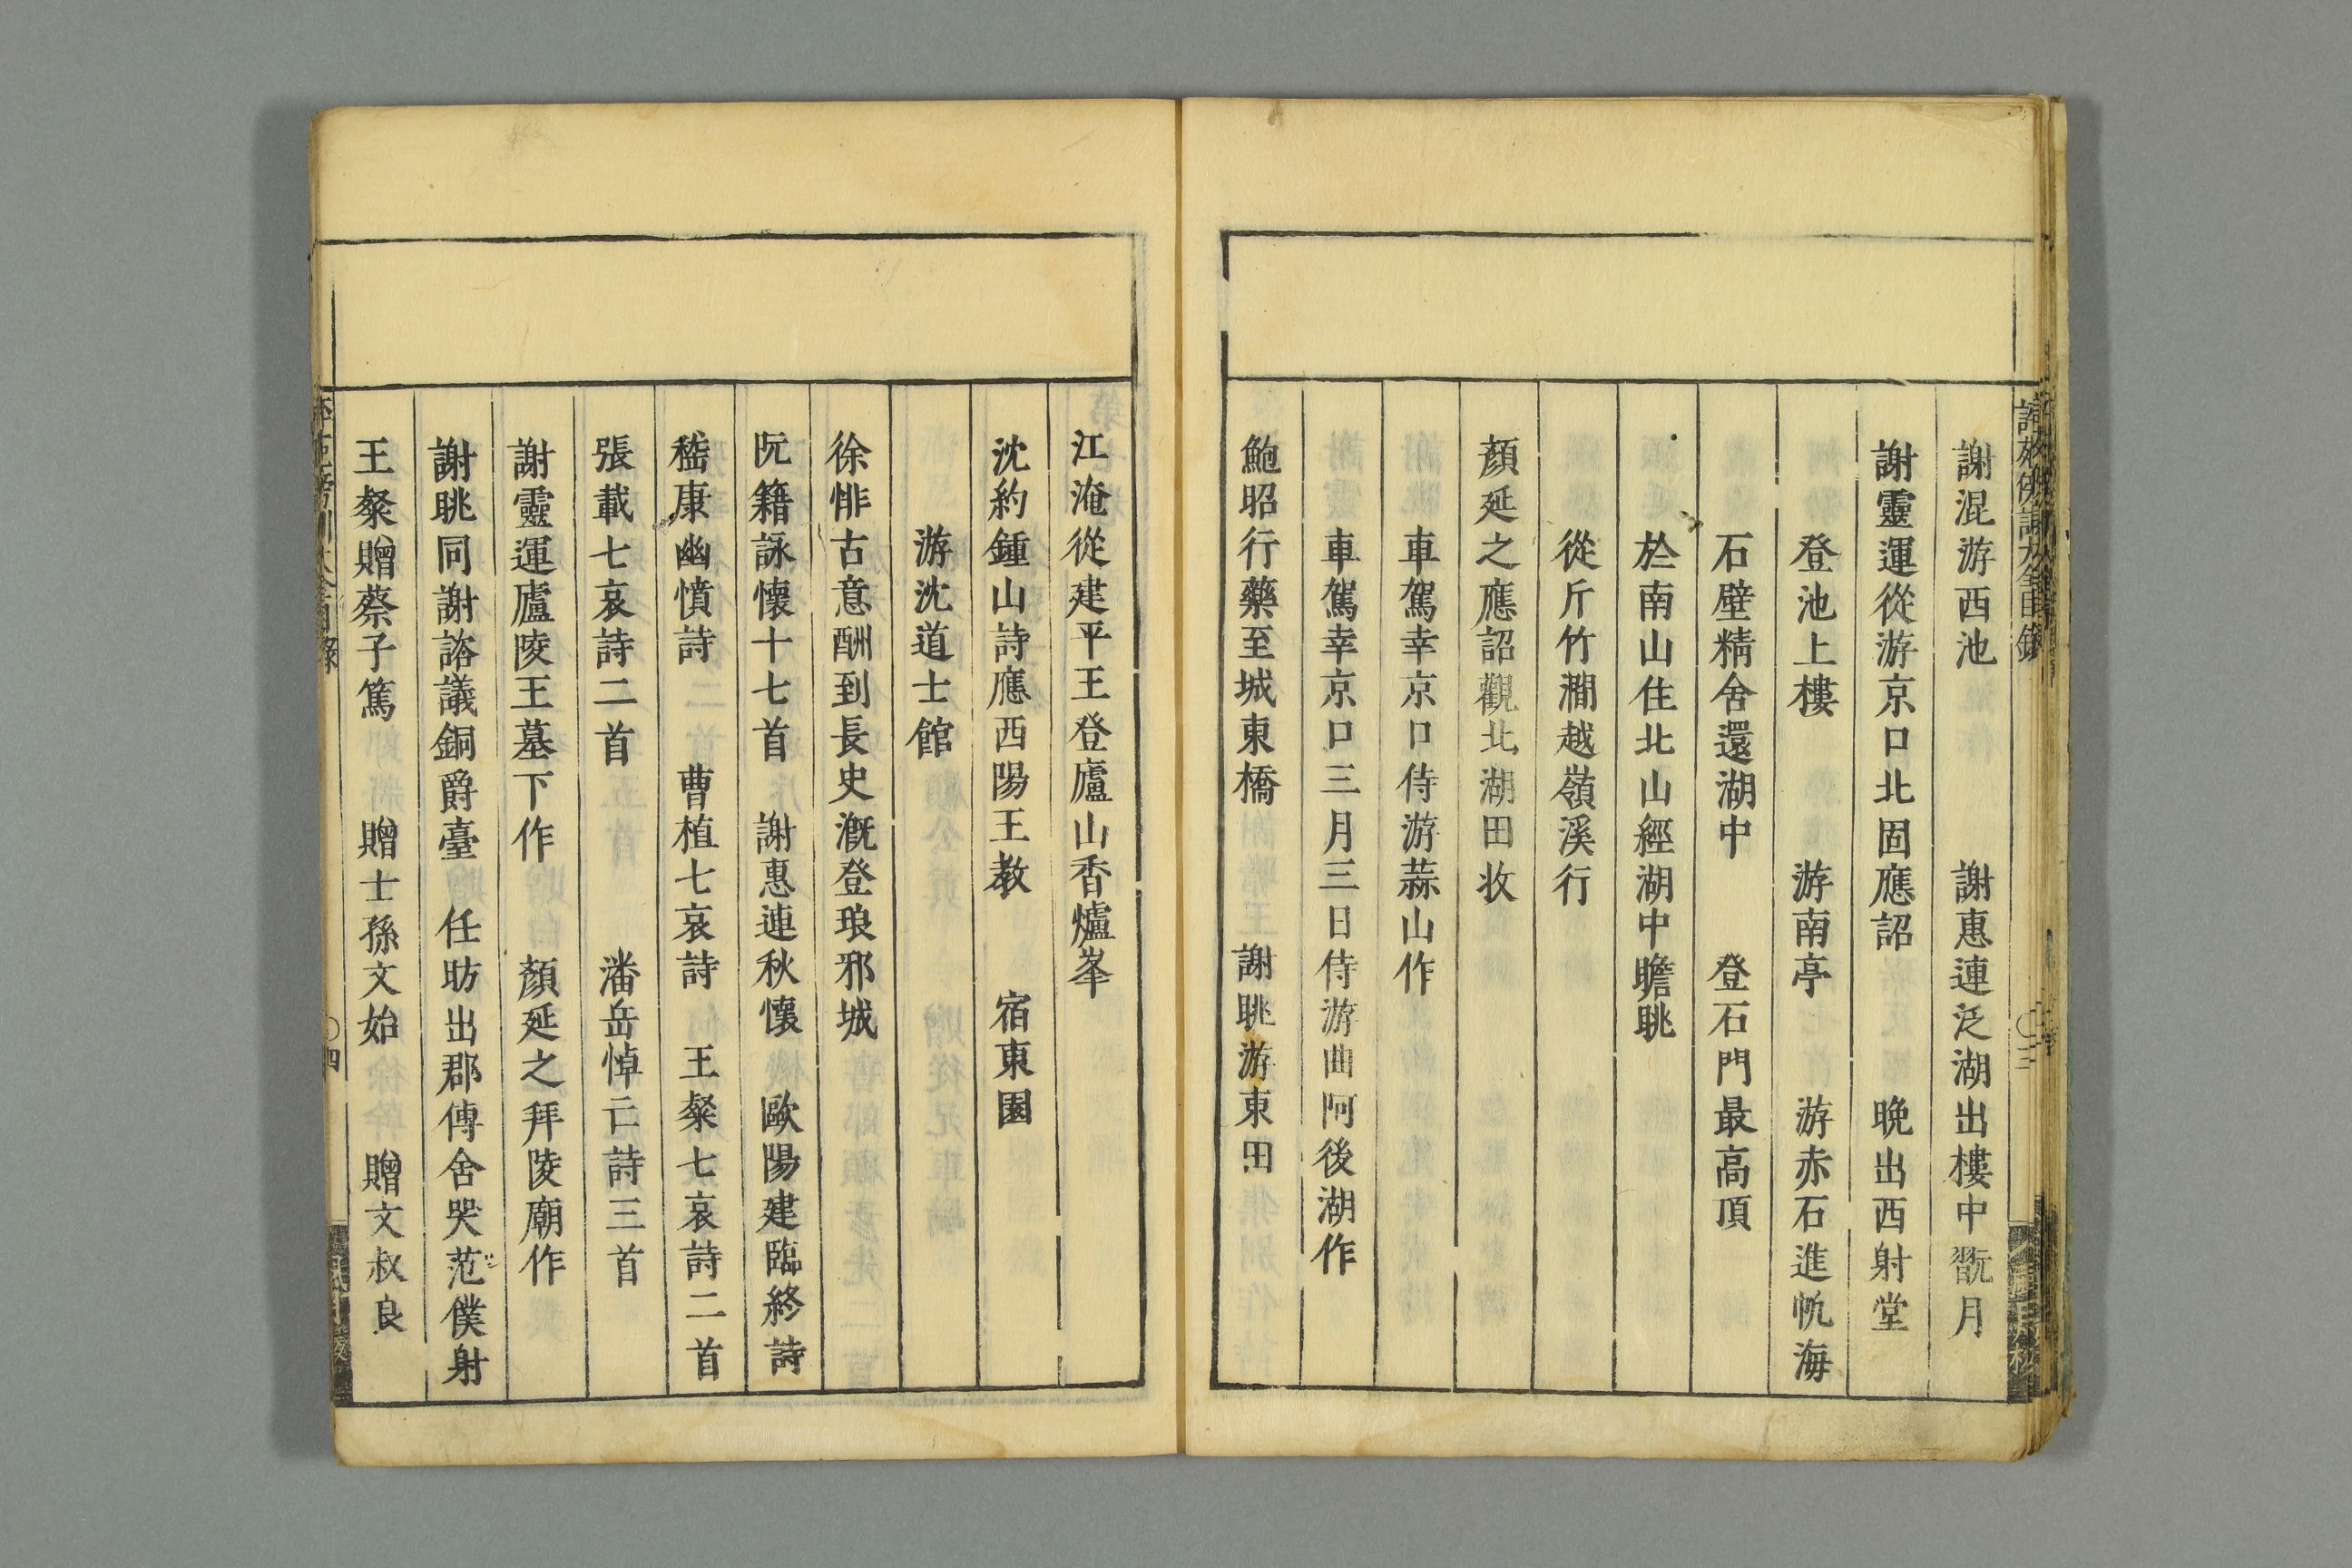 謝混游西池　謝惠連泛湖出樓中翫月
謝靈運從游京口北固應詔　晚出西射堂
登池上樓　游南亭　游赤石進帆海
石壁精舍還湖中　登石門最高頂
於南山住北山經湖中瞻眺
從斤竹澗越嶺溪行
顏延之應詔觀北湖田收
車駕幸京口侍游蒜山作
車駕幸京口三月三日侍游曲阿後湖作
鮑昭行藥至城東橋　謝眺游東田
江淹從建平王登廬山香爐峯
沈約鍾山詩應西陽王教　宿東園
游沈道士館
徐悱古意酬到長史溉登琅邪城
阮籍詠懷十七首　謝惠連秋懷　歐陽建臨終詩
嵇康幽憤詩　曹植七哀詩　王粲七哀詩二首
張載七哀詩二首　潘岳悼亡詩三首
謝靈運廬陵王墓下作　顏延之拜陵廟作
謝眺同謝諮議銅爵臺　任昉出郡傳舍哭范僕射
王粲贈蔡子篤　贈士孫文始　贈文叔良
四